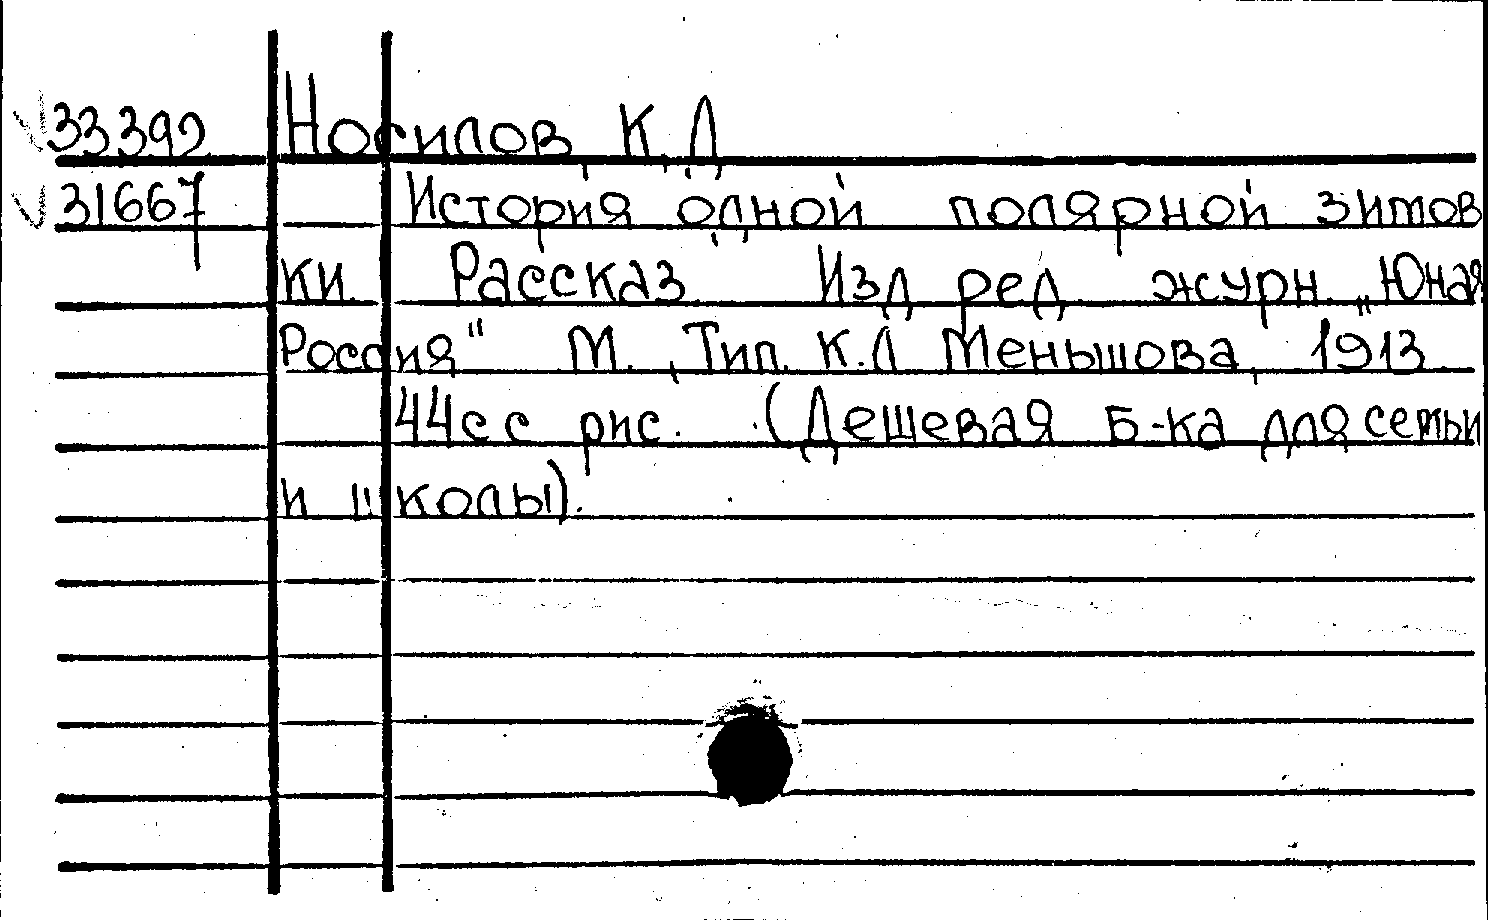 √33392 Носилов, К.Д.
√31667 История одной полярной зимов
ки. Рассказ. Изд. ред. журн. „Юная
Россия" М., Тип. К.Л Меньшова, 1913.
44с с рис. (Дешевая Б-ка для семьи
и школы).